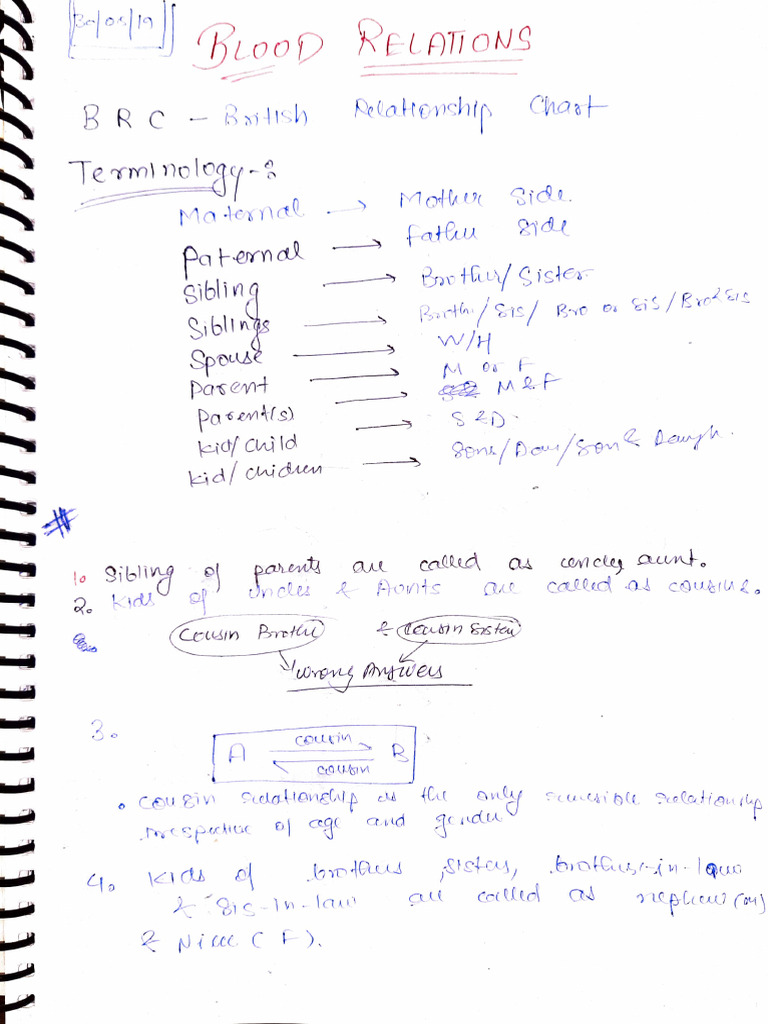 30/05/19
BLOOD RELATIONS
BRC - British Relationship Chart
Terminology-:
Maternal → Mother Side.
Paternal → Father Side
Sibling → Brother/Sister
Siblings → Broth./Sis/ Bro or Sis/Bro & Sis
Spouse → W/H
Parent → M or F
Parent(s) → M & F
kid/child → S & D.
kid/children → Sons/Dau/Son & Daugh.
#
1. Sibling of parents are called as uncle, aunt.
2. Kids of Uncles & Aunts are called as cousins.
Cousin Brother & Cousin Sister
Wrong Answers
3.
A cousin B
cousin
• Cousin relationship is the only reversible relationship
irrespective of age and gender
4. Kids of brothers, sisters, brothers-in-law
& Sis-in-law are called as nephew (M)
& Niece (F).